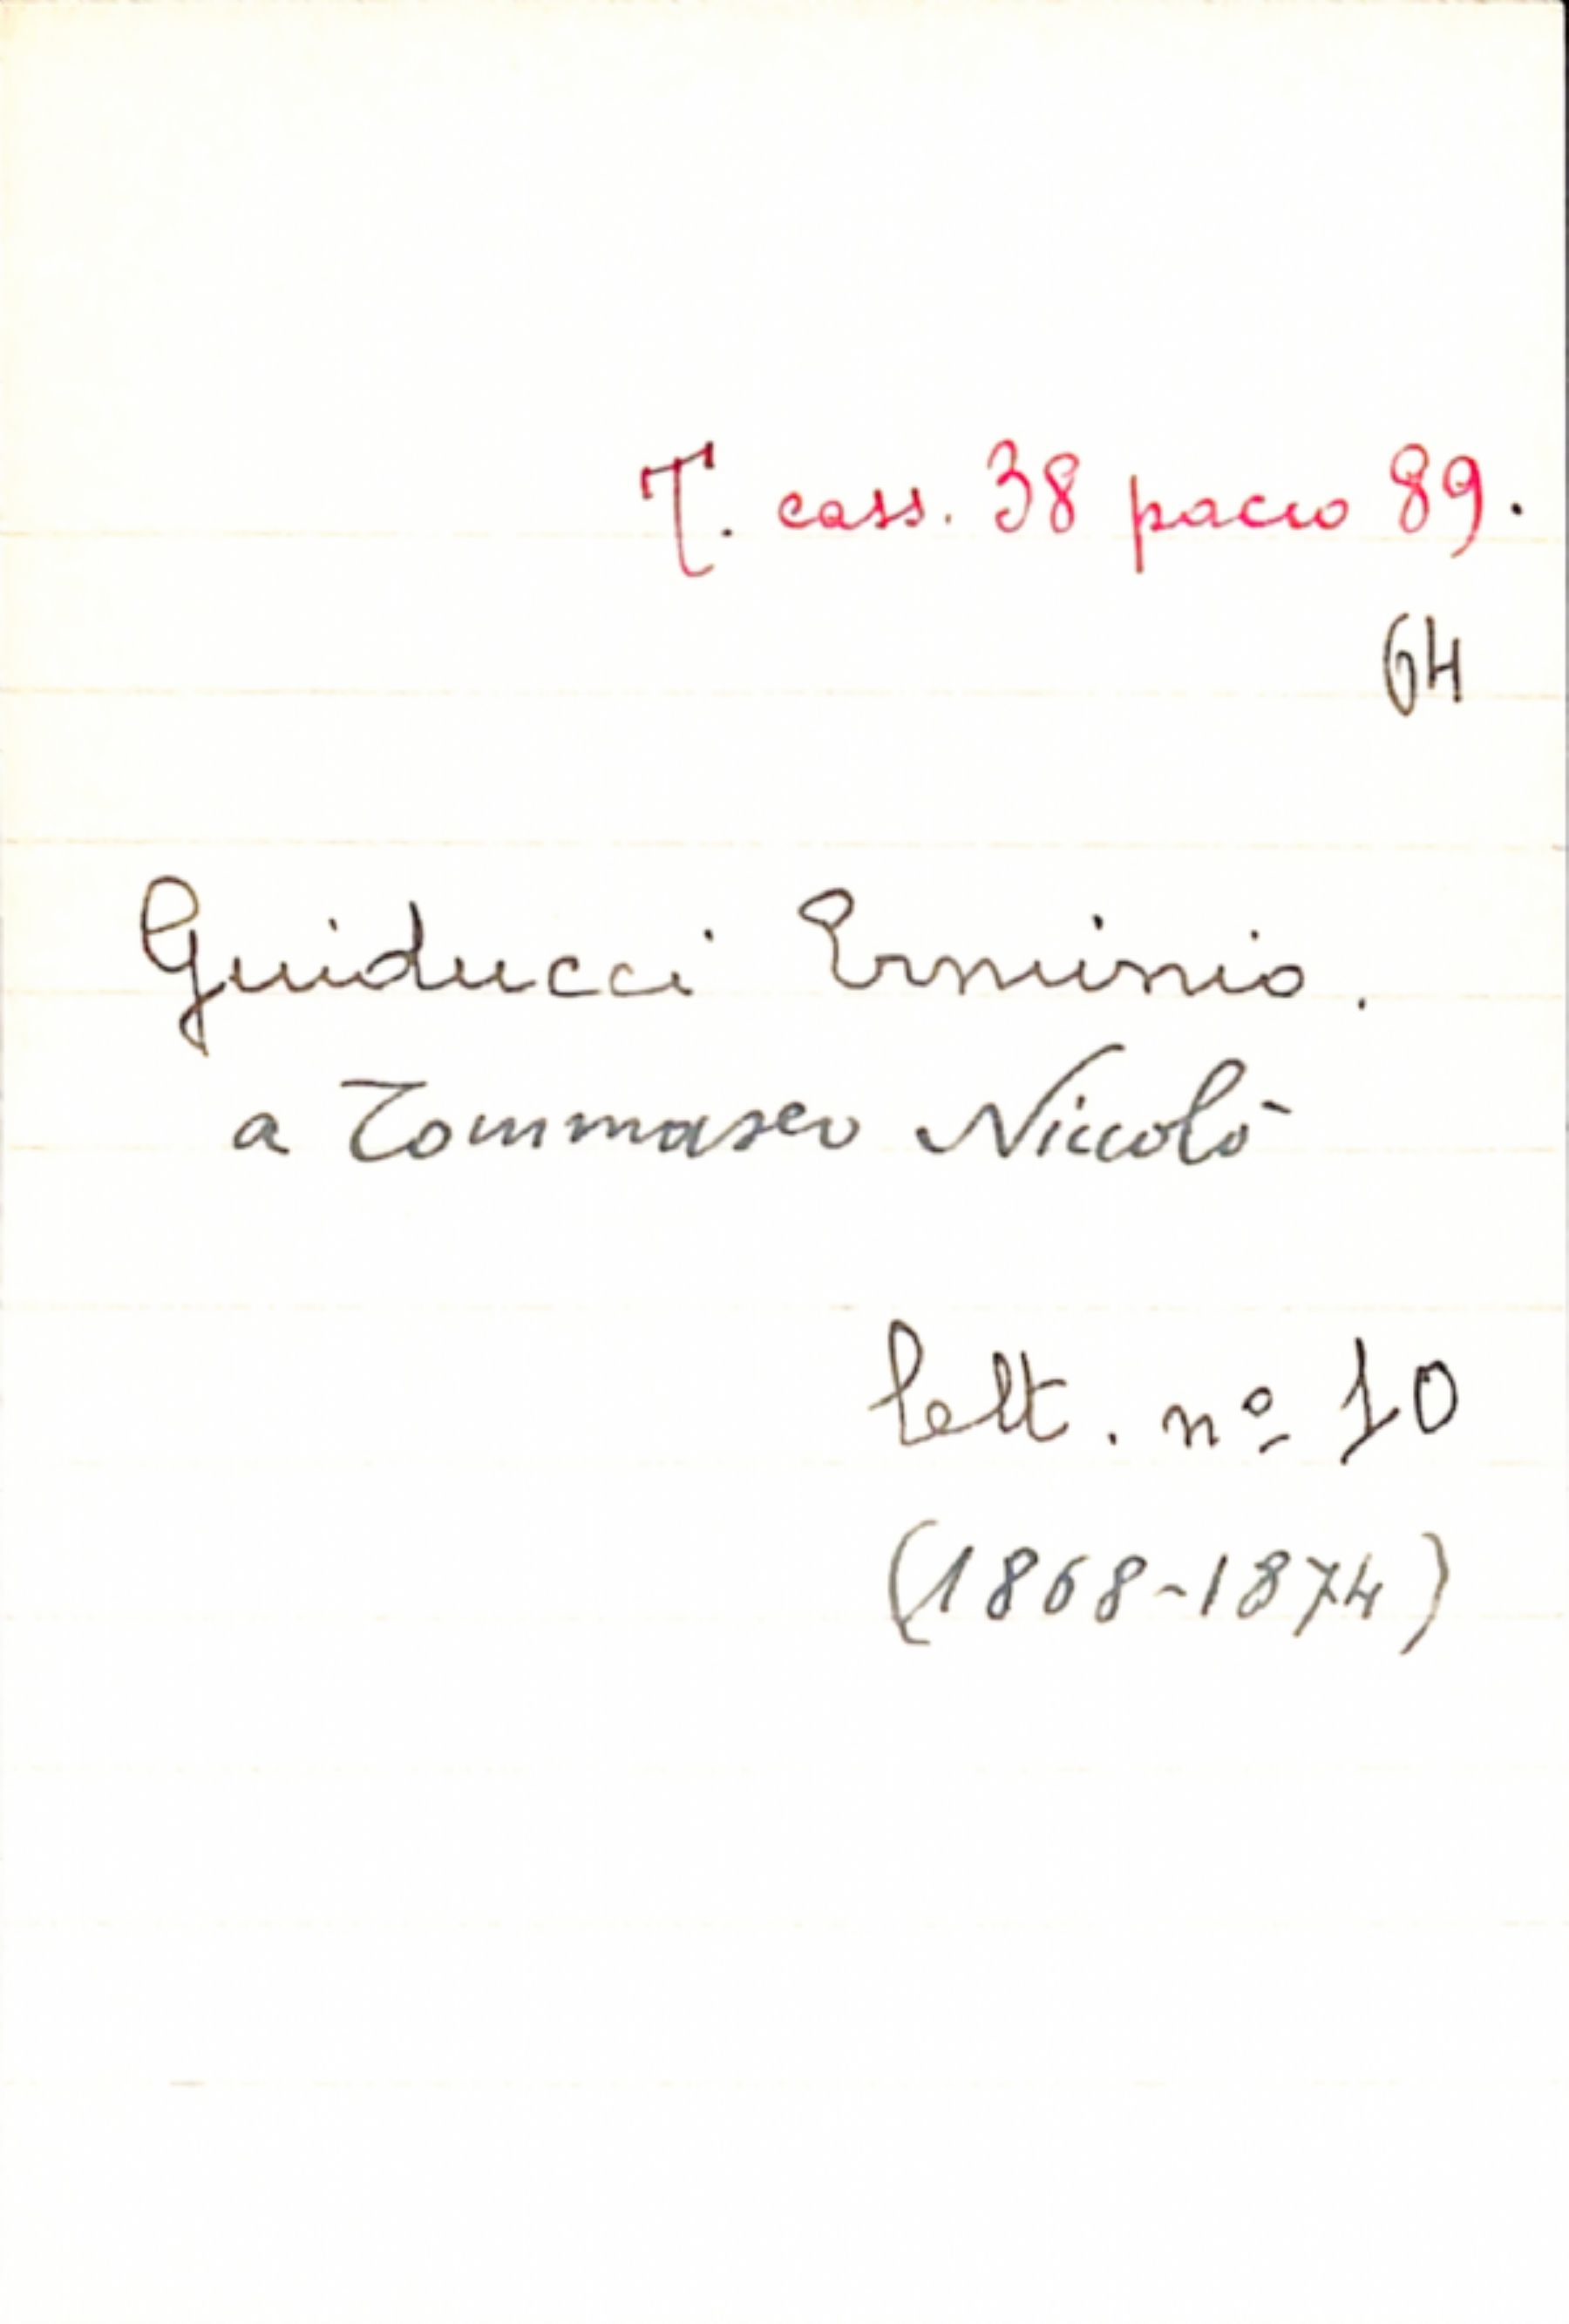 T. cass. 38 pacco 89.
64
Guiducci Erminio.
a Tommaseo Niccolò
lett. nº 10
(1868-1874)